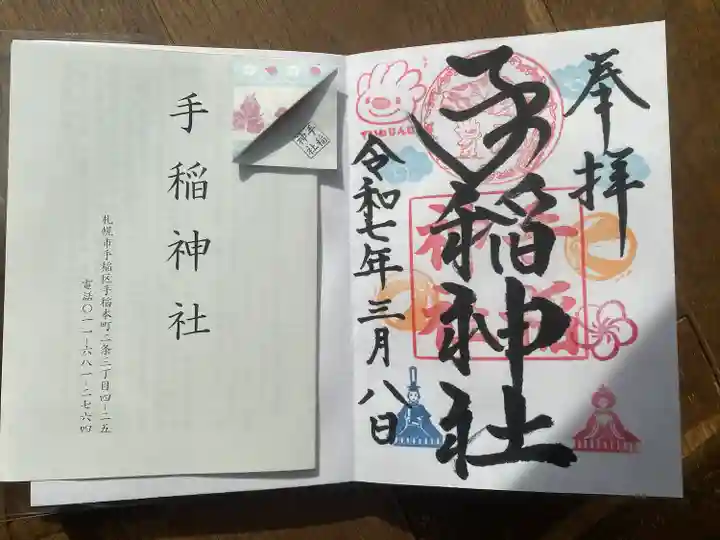 奉拝
手稲神社
令和七年三月八日
手稲
神社
手稲
神社
手稲神社
札幌市手稲区手稲本町二条三丁目四-二五
電話〇一一-六八一-二七六四